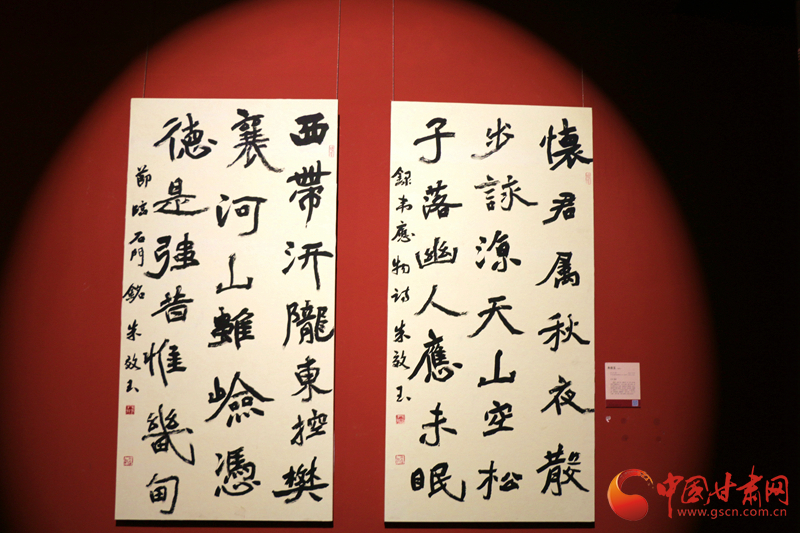 懷君属秋夜散
步詠涼天山空松
子落幽人應未眠
録韦應物诗 朱效玉
西帶汧隴東控樊
襄河山雖嶮憑
德是强昔惟畿甸
節临石門銘 朱效玉
中国甘肃网
www.gscn.com.cn